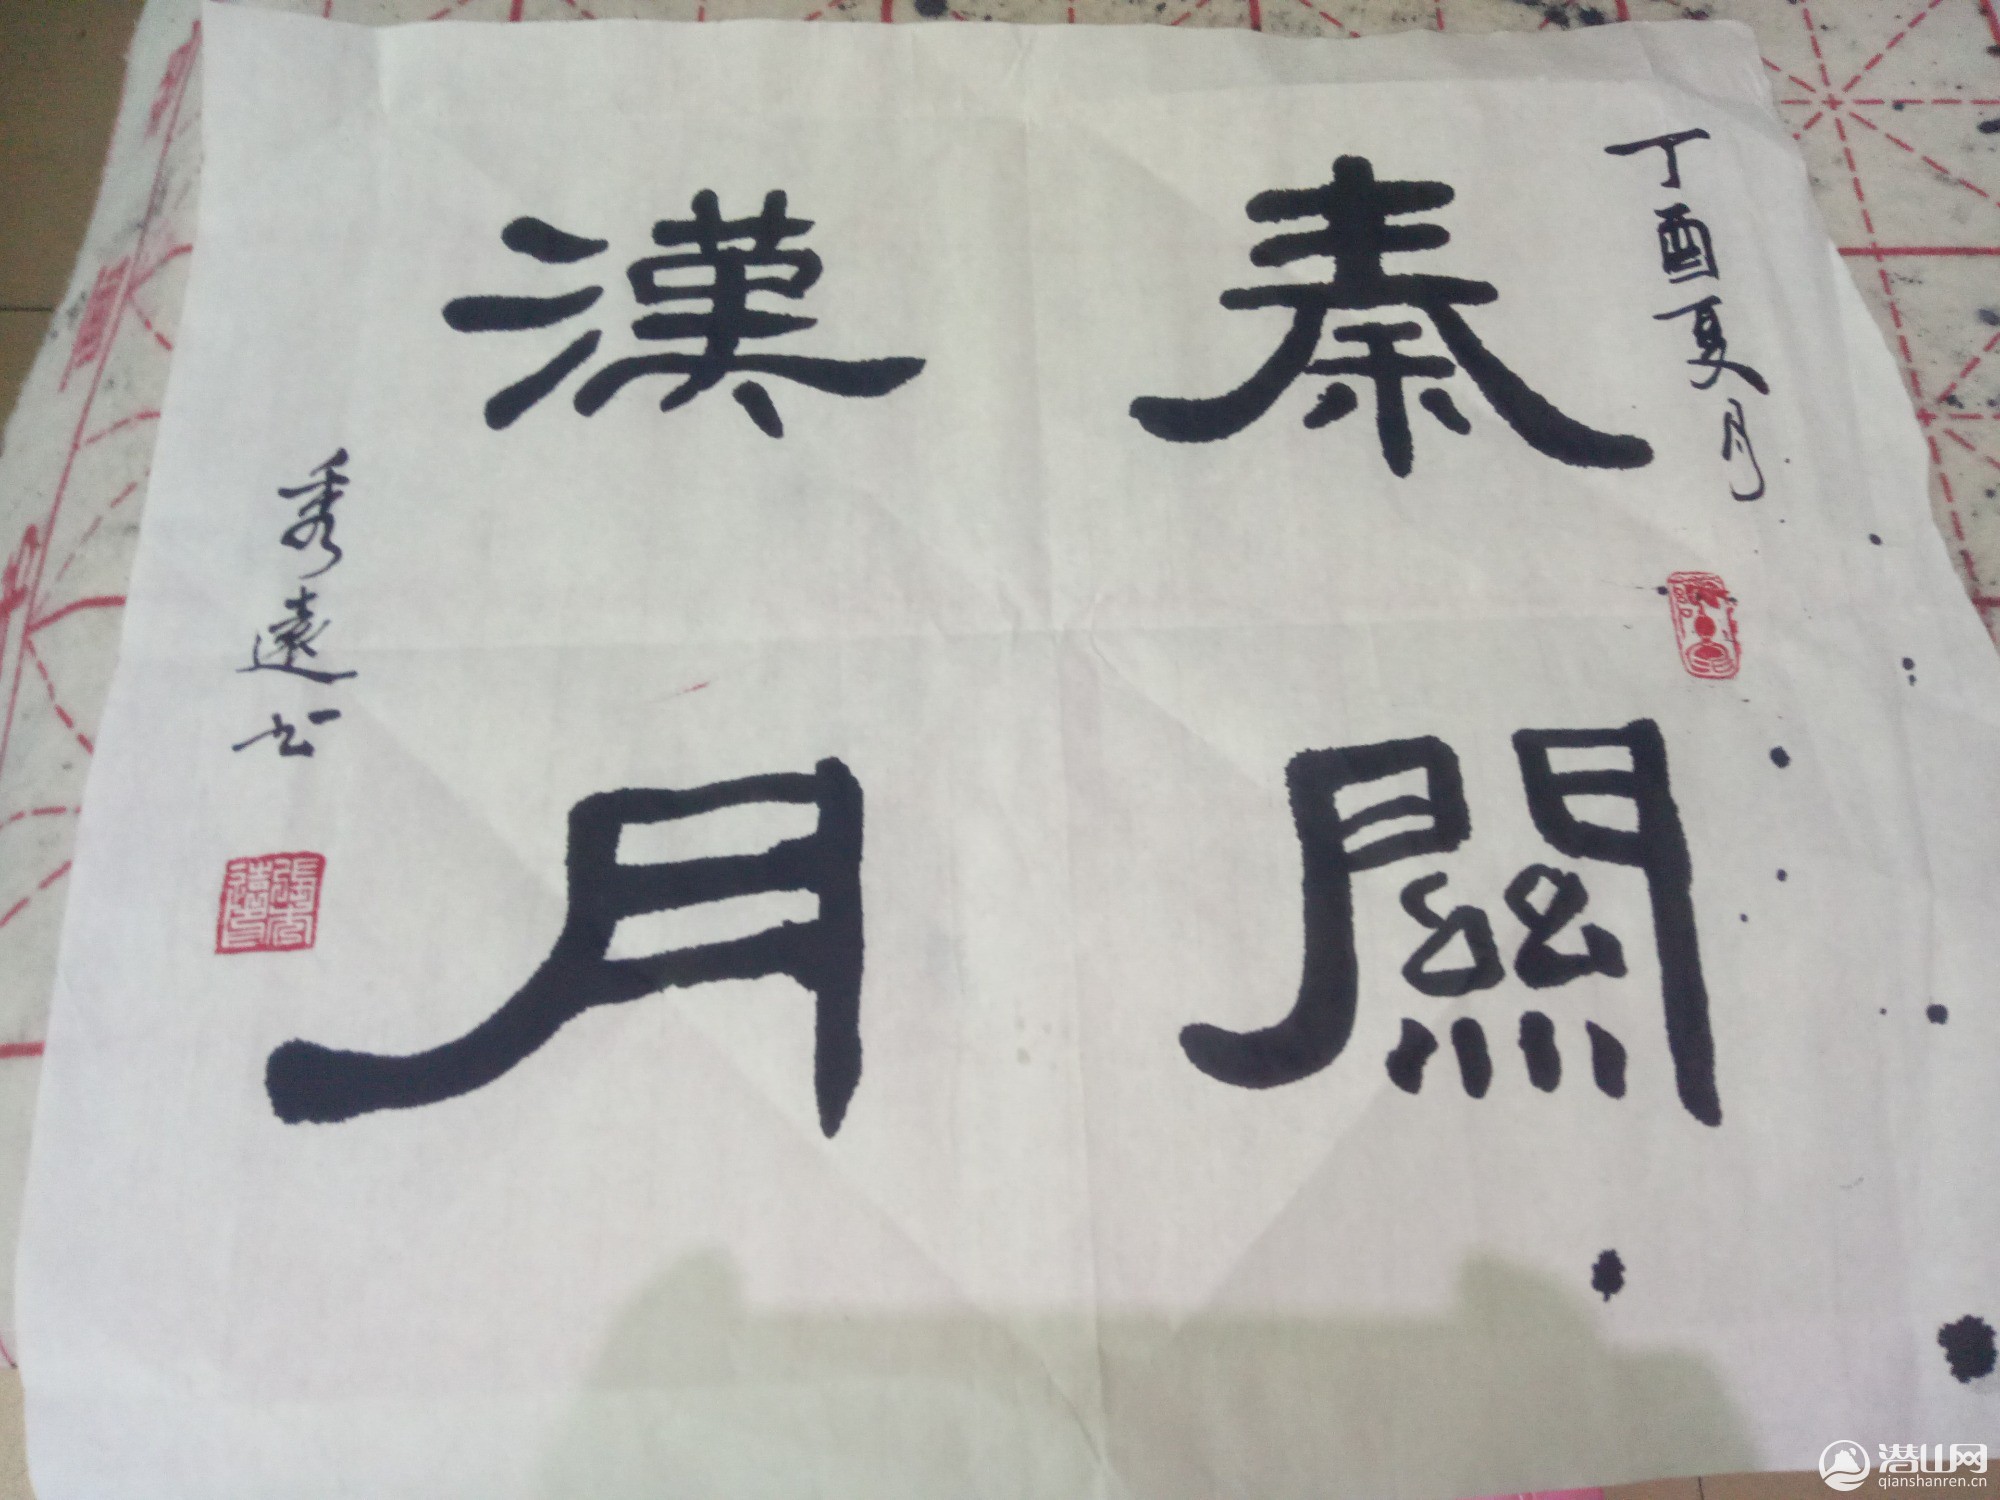 丁酉夏月
秦關
漢月
秀遠书
張秀
遠印
潜山网
qianshanren.cn